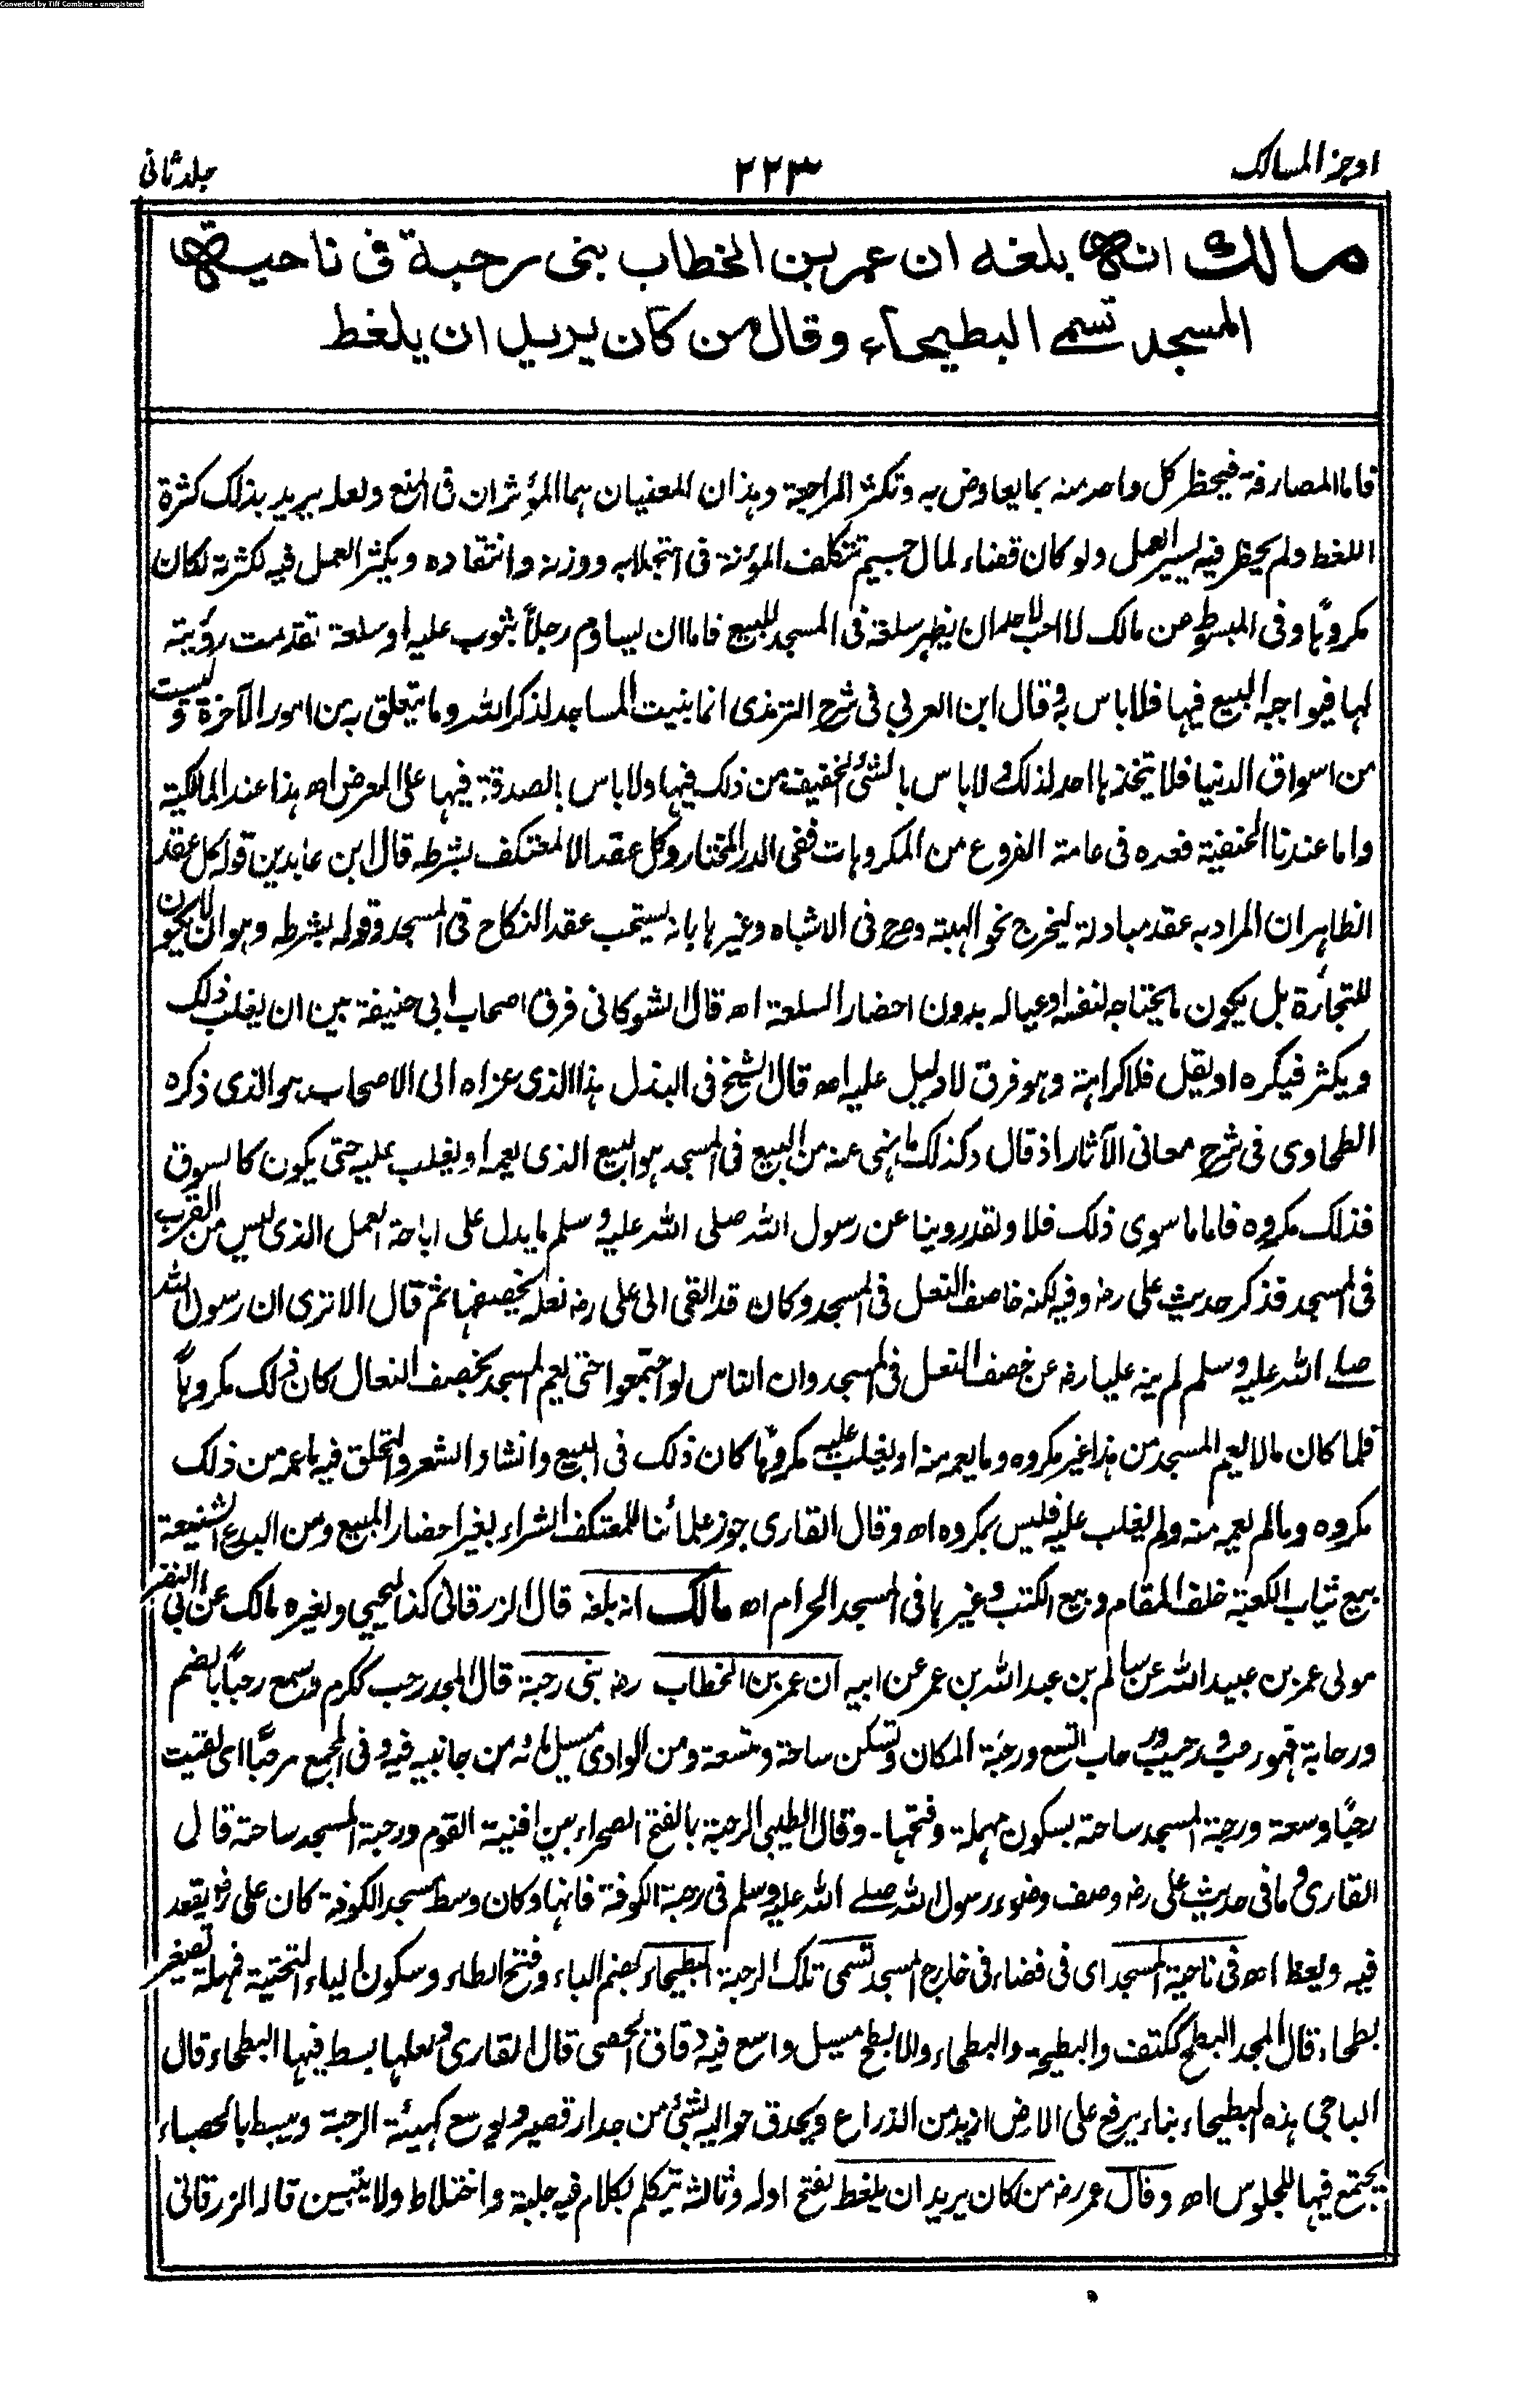 Converted by Tiff Combine - unregistered
اوجز المسالک
۲۲۳
جلد ثانی
مالك انه بلغه ان عمر بن الخطاب بنى رحبة فى ناحية
المسجد تسمى البطيحاء وقال من كان يريد ان يلغط
فاما المصارفة فيحظر كل واحد منه بما يعاوض به وتكثر المراجعة وهذان المعنيان هما المؤثران فى المنع ولعله يريد بذلك كثرة
اللغط ولم يحظر فيه يسير العمل ولو كان قضاء لمال جسيم تتكلف المؤنة فى اجتلابه ووزنه وانتقاده ويكثر العمل فيه لكثرته لكان
مكروهًا وفى المبسوط عن مالك لا احب لاحد ان يظهر سلعة فى المسجد للبيع فاما ان يساوم رجلاً بثوب عليه او سلعة تقدمت رؤيته
لها فيواجبه البيع فيها فلا باس به وقال ابن العربي فى شرح الترمذى انما بنيت المساجد لذكر الله وما يتعلق به من امور الآخرة وليست
من اسواق الدنيا فلا يتخذها احد لذلك ولا باس بالشئ الخفيف من ذلك فيها ولا باس بالصدقة فيها على المعرض اه هذا عند المالكية
واما عندنا الحنفية فعده فى عامة الفروع من المكروهات ففى الدر المختار وكل عقد الا لمعتكف بشرطه قال ابن عابدين قوله كل عقد
الظاهر ان المراد به عقد مبادلة ليخرج نحو الهبة وصرح فى الاشباه وغيرها بانه يستحب عقد النكاح فى المسجد وقوله بشرطه وهو ان لا يكون
للتجارة بل يكون ما يحتاجه لنفسه او عياله بدون احضار السلعة اه قال الشوكانى فرق اصحاب ابى حنيفة بين ان يغلب ذلك
ويكثر فيكره او يقل فلا كراهة وهو فرق لا دليل عليه اه قال الشيخ فى البذل هذا الذى عزاه الى الاصحاب هو الذى ذكره
الطحاوى فى شرح معانى الآثار اذ قال وكذلك ما نهى عنه من البيع فى المسجد هو البيع الذى يعمه او يغلب عليه حتى يكون كالسوق
فذلك مكروه فاما ما سوى ذلك فلا ولقد روينا عن رسول الله صلى الله عليه وسلم ما يدل على اباحة العمل الذى ليس من القرب
فى المسجد فذكر حديث على رض وفيه لكنه خاصف النعل فى المسجد وكان قد القى الى على رض نعله يخصفها ثم قال الا ترى ان رسول الله
صلى الله عليه وسلم لم ينه عليا رض عن خصف النعل فى المسجد وان الناس لو اجتمعوا حتى يعم المسجد بخصف النعال كان ذلك مكروهاً
فلما كان ما لا يعم المسجد من هذا غير مكروه وما يعمه منه او يغلب عليه مكروهًا كان ذلك فى البيع وانشاد الشعر والتحلق فيه ما عمه من ذلك
مكروه وما لم يعمه منه ولم يغلب عليه فليس بمكروه اه وقال القارى جوز علمائنا للمعتكف الشراء بغير احضار المبيع ومن البدع الشنيعة
بيع ثياب الكعبة خلف المقام وبيع الكتب وغيرها فى المسجد الحرام اه مالك انه بلغه قال الزرقانى كذا ليحيى ولغيره مالك عن ابى النضر
مولى عمر بن عبيد الله عن سالم بن عبد الله بن عمر عن ابيه ان عمر بن الخطاب رض بنى رحبة قال المجد رحب ككرم وسمع رحبًا بالضم
ورحابة فهو رحب ورحيب ورحاب اتسع ورحبة المكان وتسكن ساحته ومتسعه ومن الوادى مسيل مائه من جانبيه فيه وفى المجمع مرحبًا اى لقيت
رحبًا وسعة ورحبة المسجد ساحته بسكون مهملة وفتحها۔ وقال الطيبى الرحبة بالفتح الصحراء بين افنية القوم ورحبة المسجد ساحته قال
القارى وما فى حديث على رض وصف وضوء رسول الله صلى الله عليه وسلم فى رحبة الكوفة فانها دكان وسط مسجد الكوفة كان على رض يقعد
فيه ويعظ اه فى ناحية المسجد اى فى فضاء فى خارج المسجد تسمى تلك الرحبة البطيحاء بضم الباء وفتح الطاء وسكون الياء التحتية فمهملة تصغير
بطحاء قال المجد البطح ككتف والبطيحة والبطحاء والابطح مسيل واسع فيه دقاق الحصى قال القارى ولعلها بسط فيها البطحاء قال
الباجى هذه البطيحاء بناء يرفع على الارض ازيد من الذراع ويحدق حواليه بشئ من جدار قصير ويوسع كهيئة الرحبة ويبسط بالحصباء
يجتمع فيها للجلوس اه وقال عمر رض من كان يريد ان يلغط بفتح اوله وثالثه يتكلم بكلام فيه جلبة واختلاط ولا يتبين قاله الزرقانى